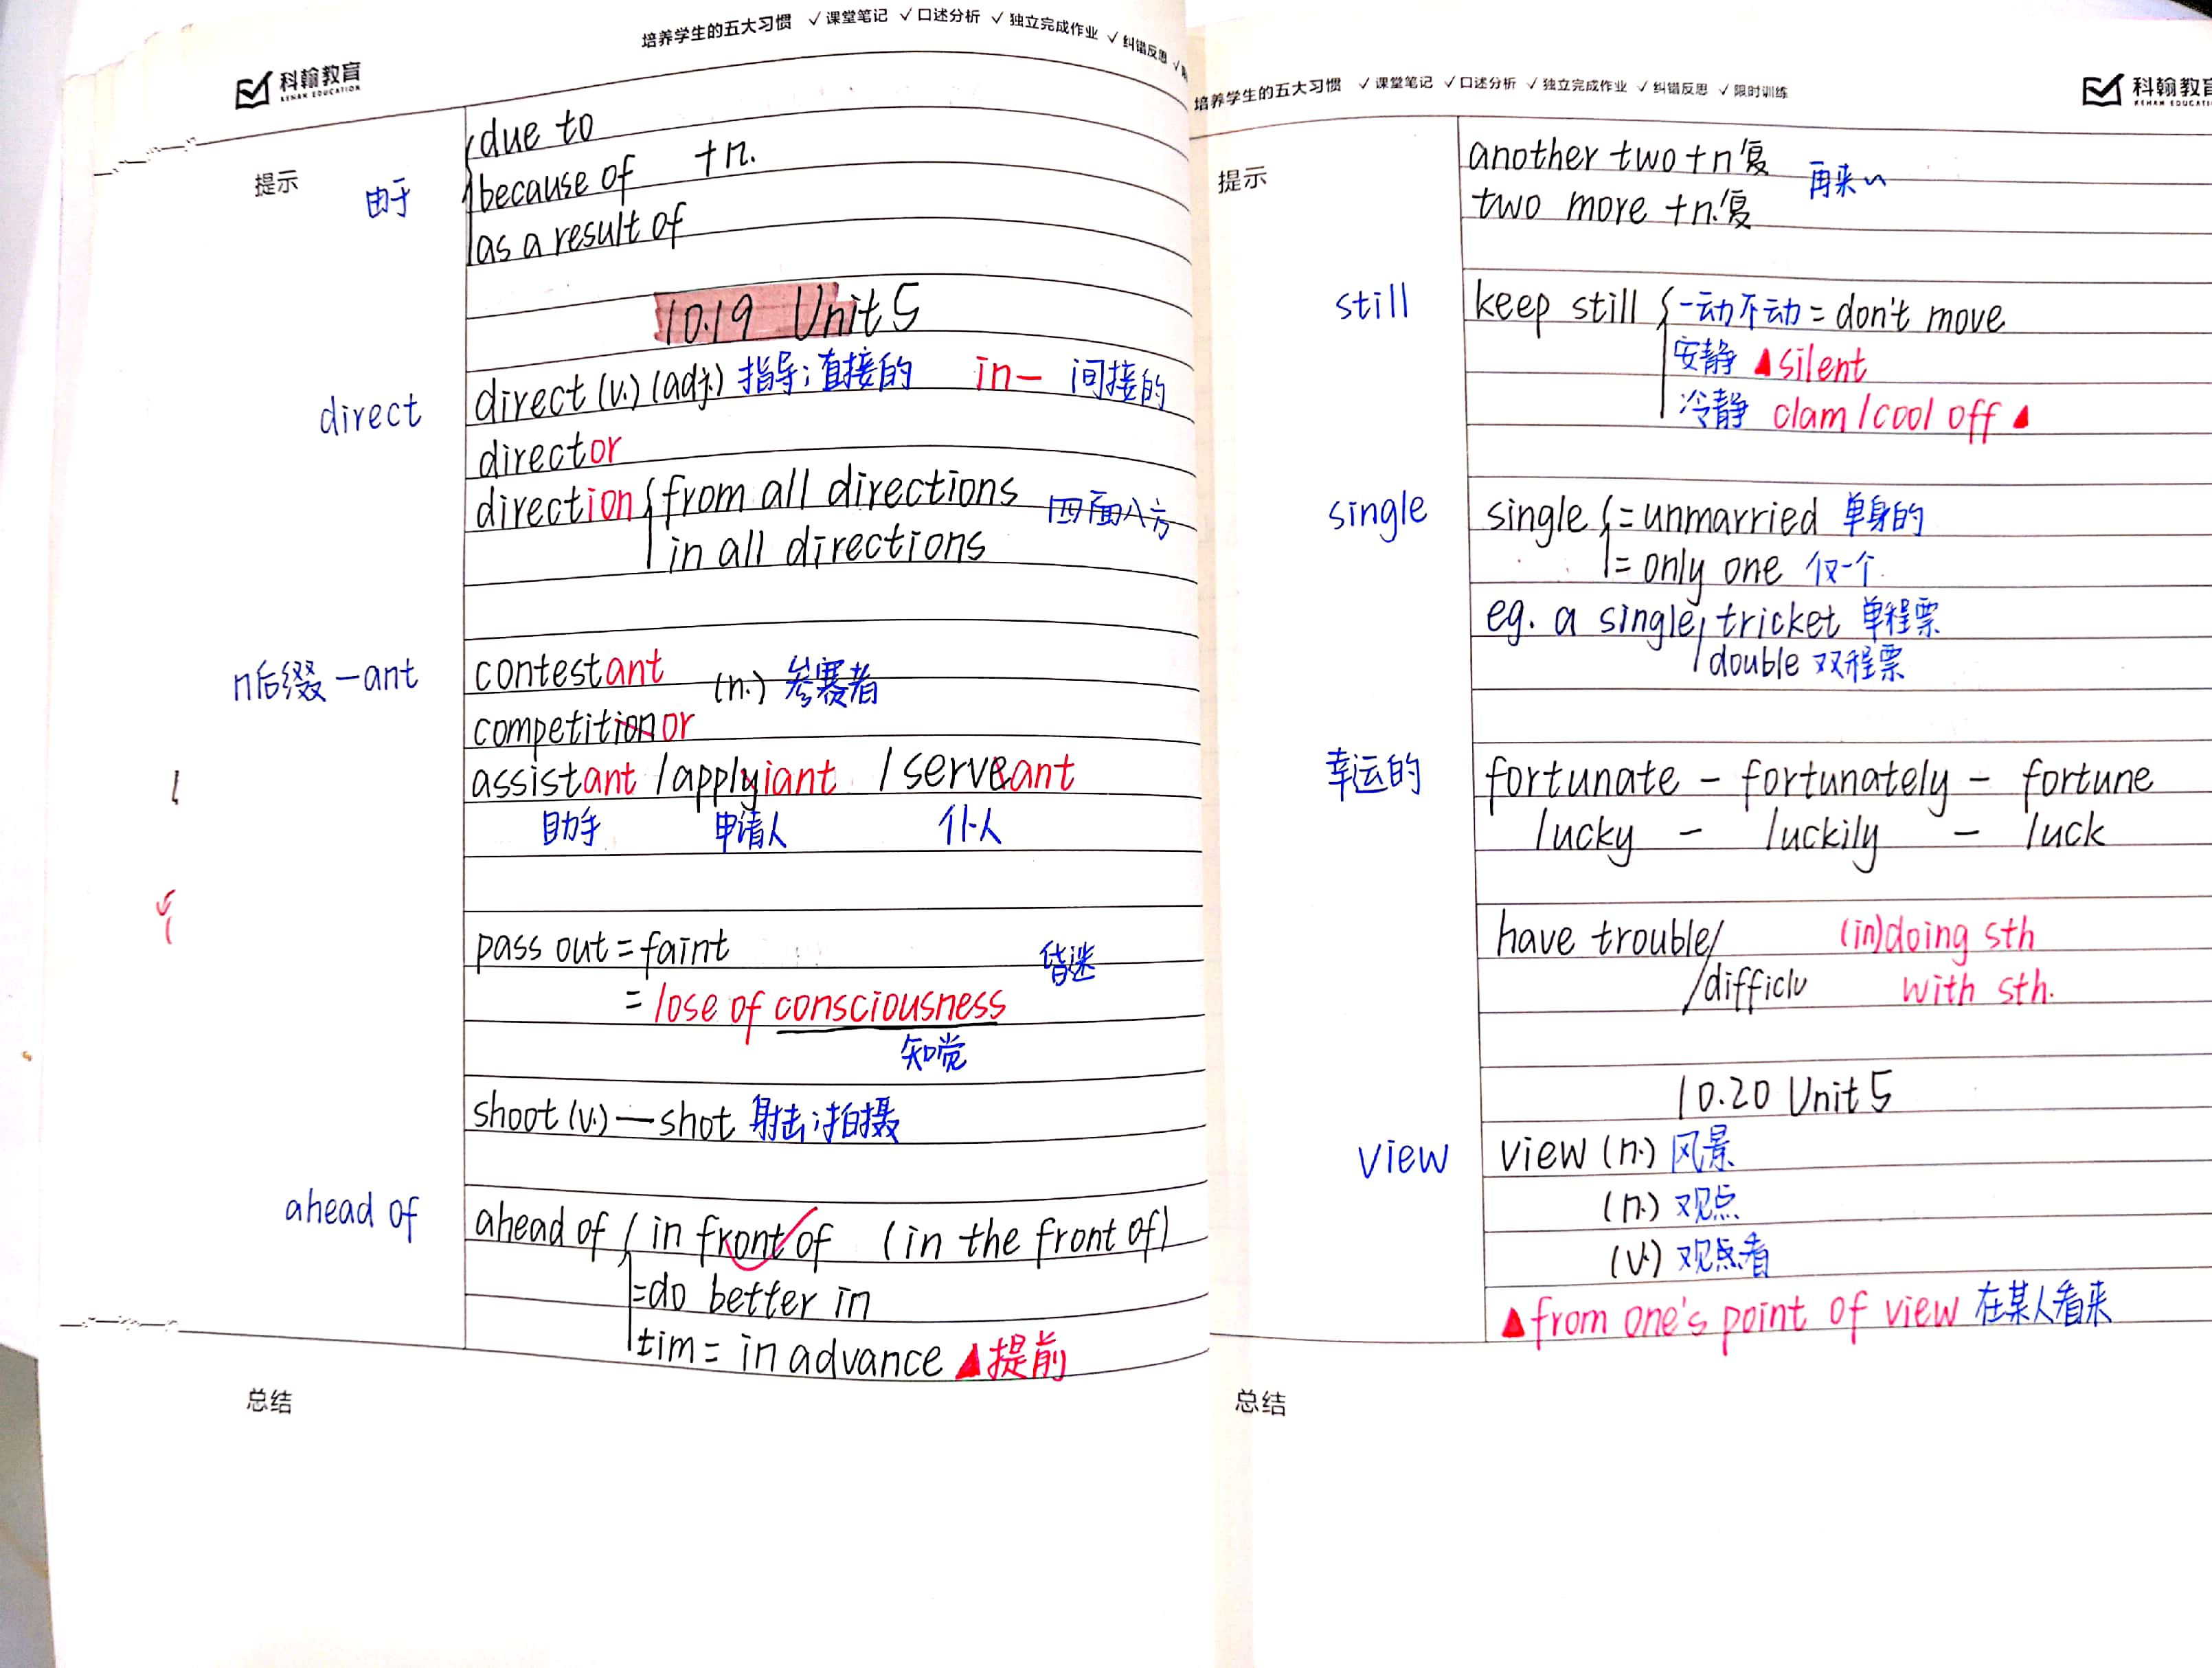 培养学生的五大习惯 ✓课堂笔记 ✓口述分析 ✓独立完成作业 ✓纠错反思
科翰教育
KEHAN EDUCATION
提示
由于
due to
because of +n.
as a result of
10.19 Unit 5
direct
direct (v.) (adj.) 指导;直接的 in— 间接的
director
direction from all directions 四面八方
in all directions
n后缀 -ant
contestant (n.) 参赛者
competition or
assistant /applyiant /serveant
助手 申请人 仆人
pass out = faint 昏迷
= lose of consciousness
知觉
shoot (v.) — shot 射击;拍摄
ahead of
ahead of in front of (in the front of)
=do better in
tim = in advance ▲提前
总结
培养学生的五大习惯 ✓课堂笔记 ✓口述分析 ✓独立完成作业 ✓纠错反思 ✓限时训练
科翰教育
KEHAN EDUCATI
提示
another two +n复 再来~
two more +n.复
still
keep still 一动不动 = don't move
安静 ▲silent
冷静 clam / cool off ▲
single
single =unmarried 单身的
= only one 仅一个
eg. a single tricket 单程票
/double 双程票
幸运的
fortunate - fortunately - fortune
lucky - luckily - luck
have trouble/ (in)doing sth
/difficlu with sth.
10.20 Unit 5
view
view (n.) 风景
(n.) 观点
(v.) 观看
▲from one's point of view 在某人看来
总结